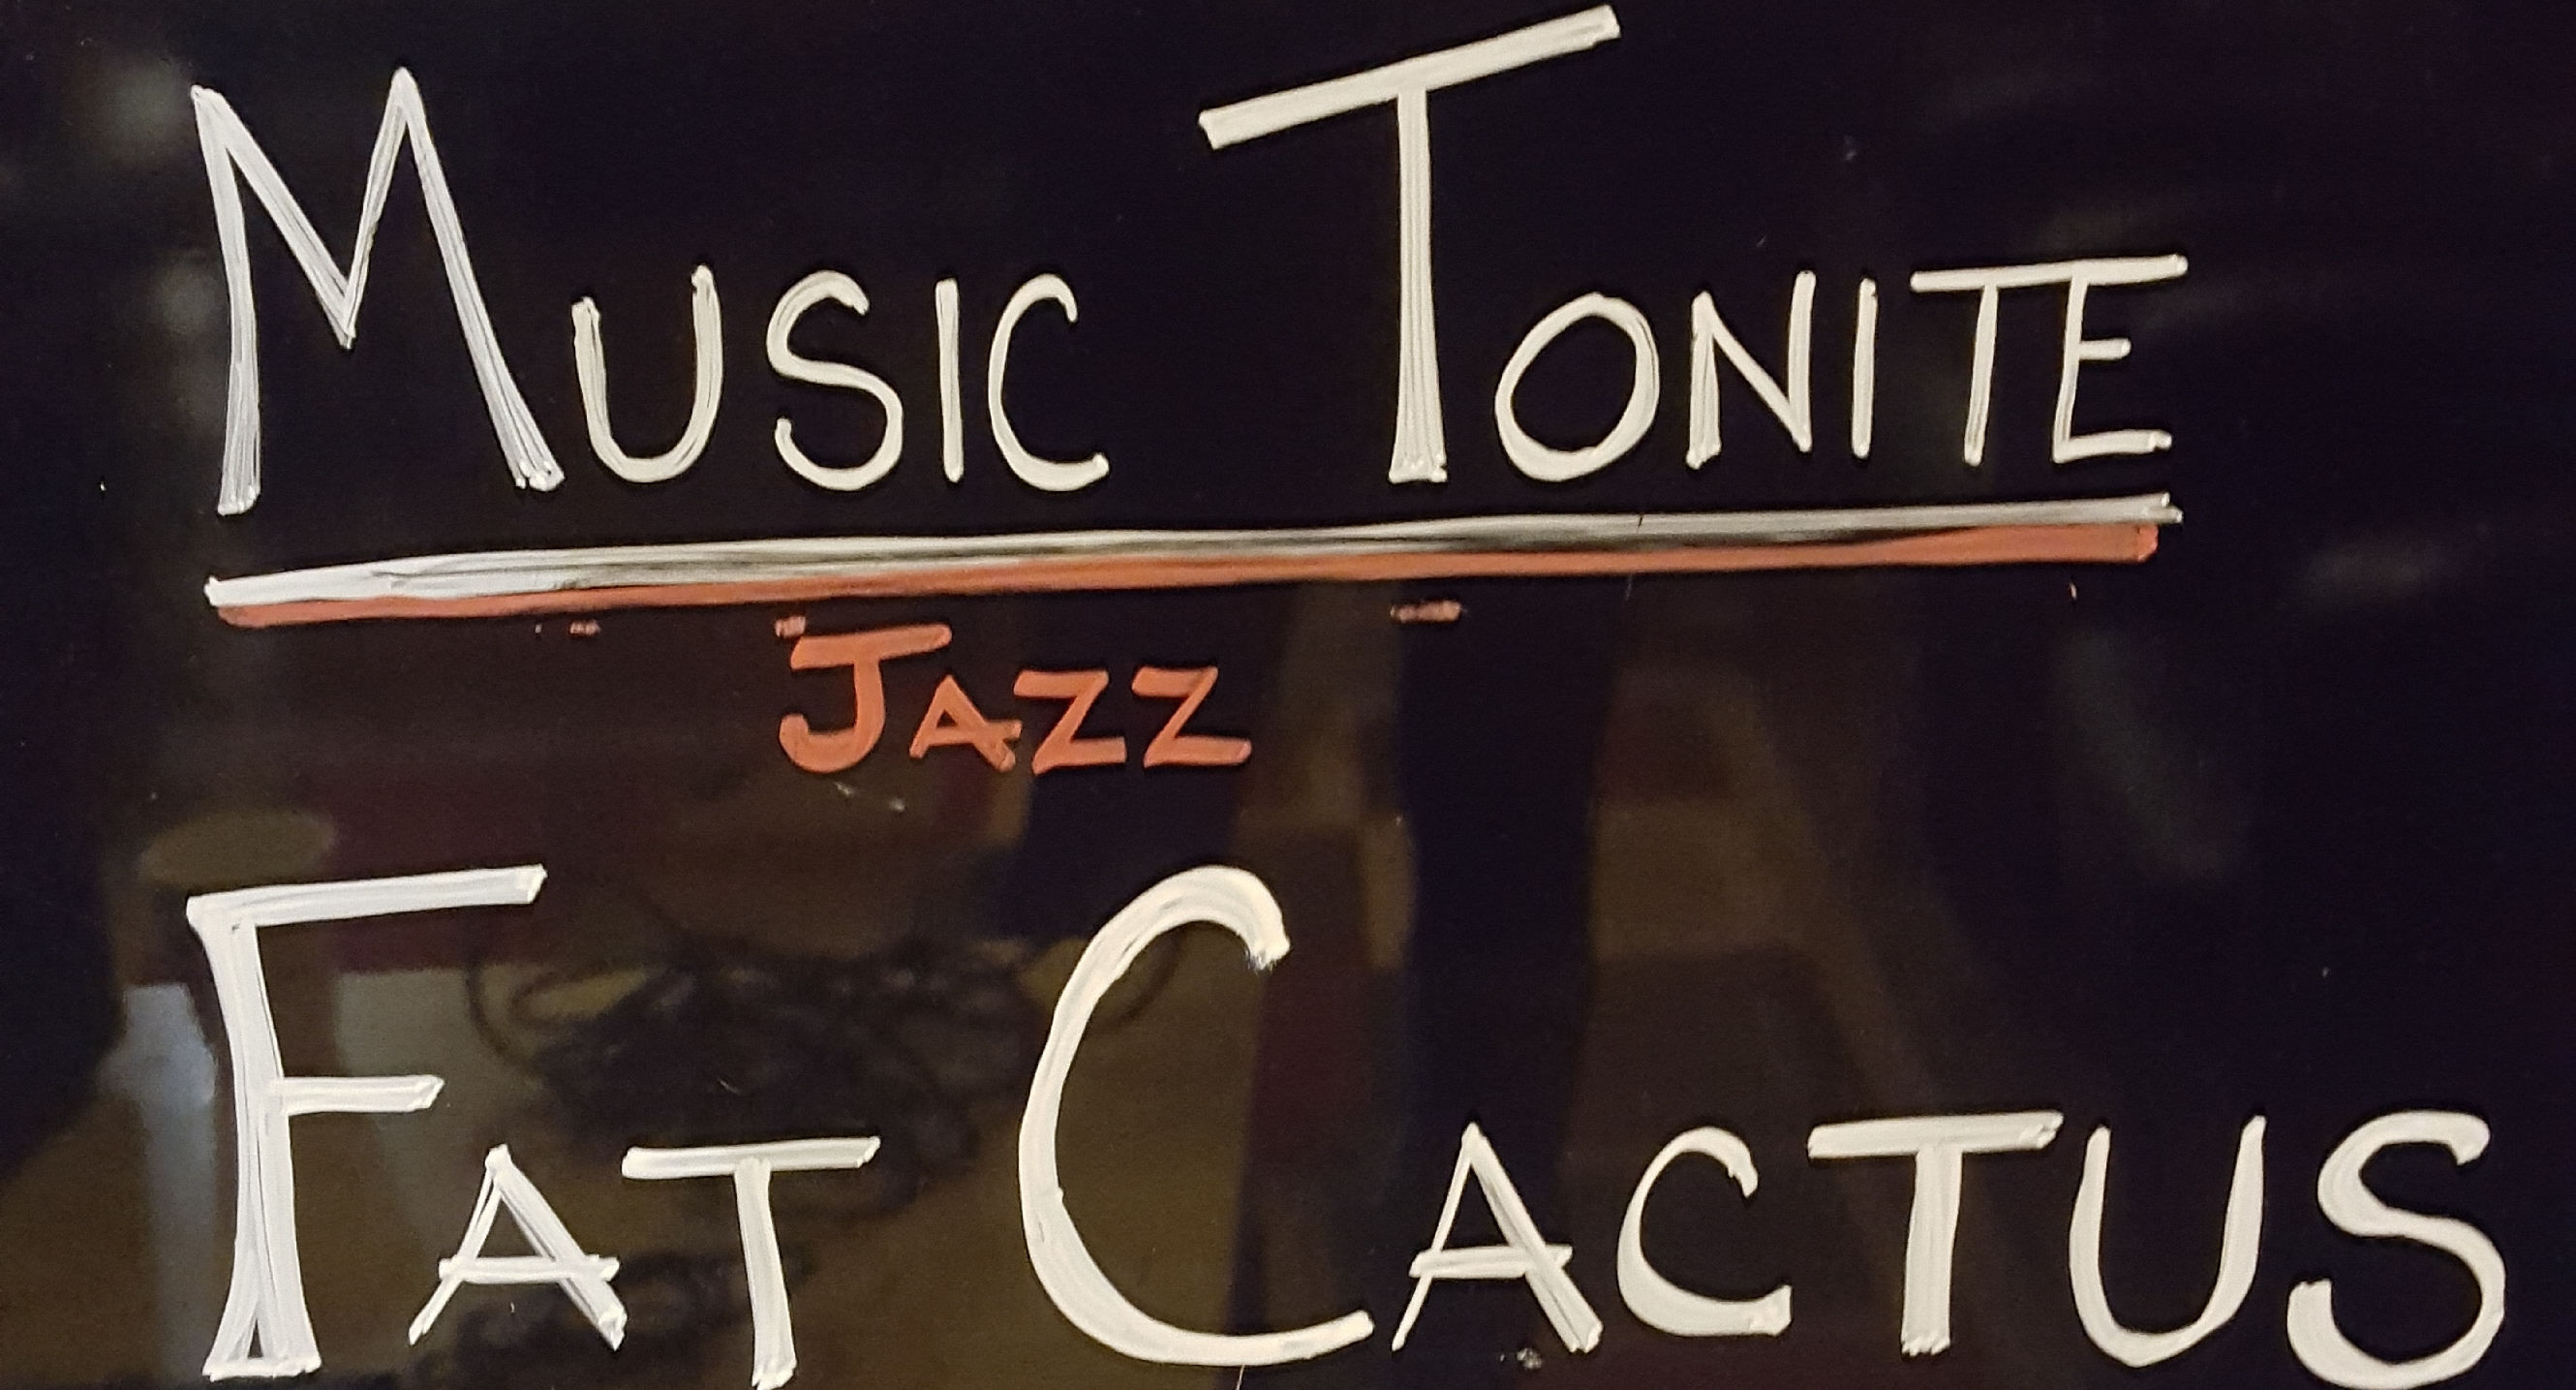 MUSIC TONITE
JAZZ
FAT CACTUS